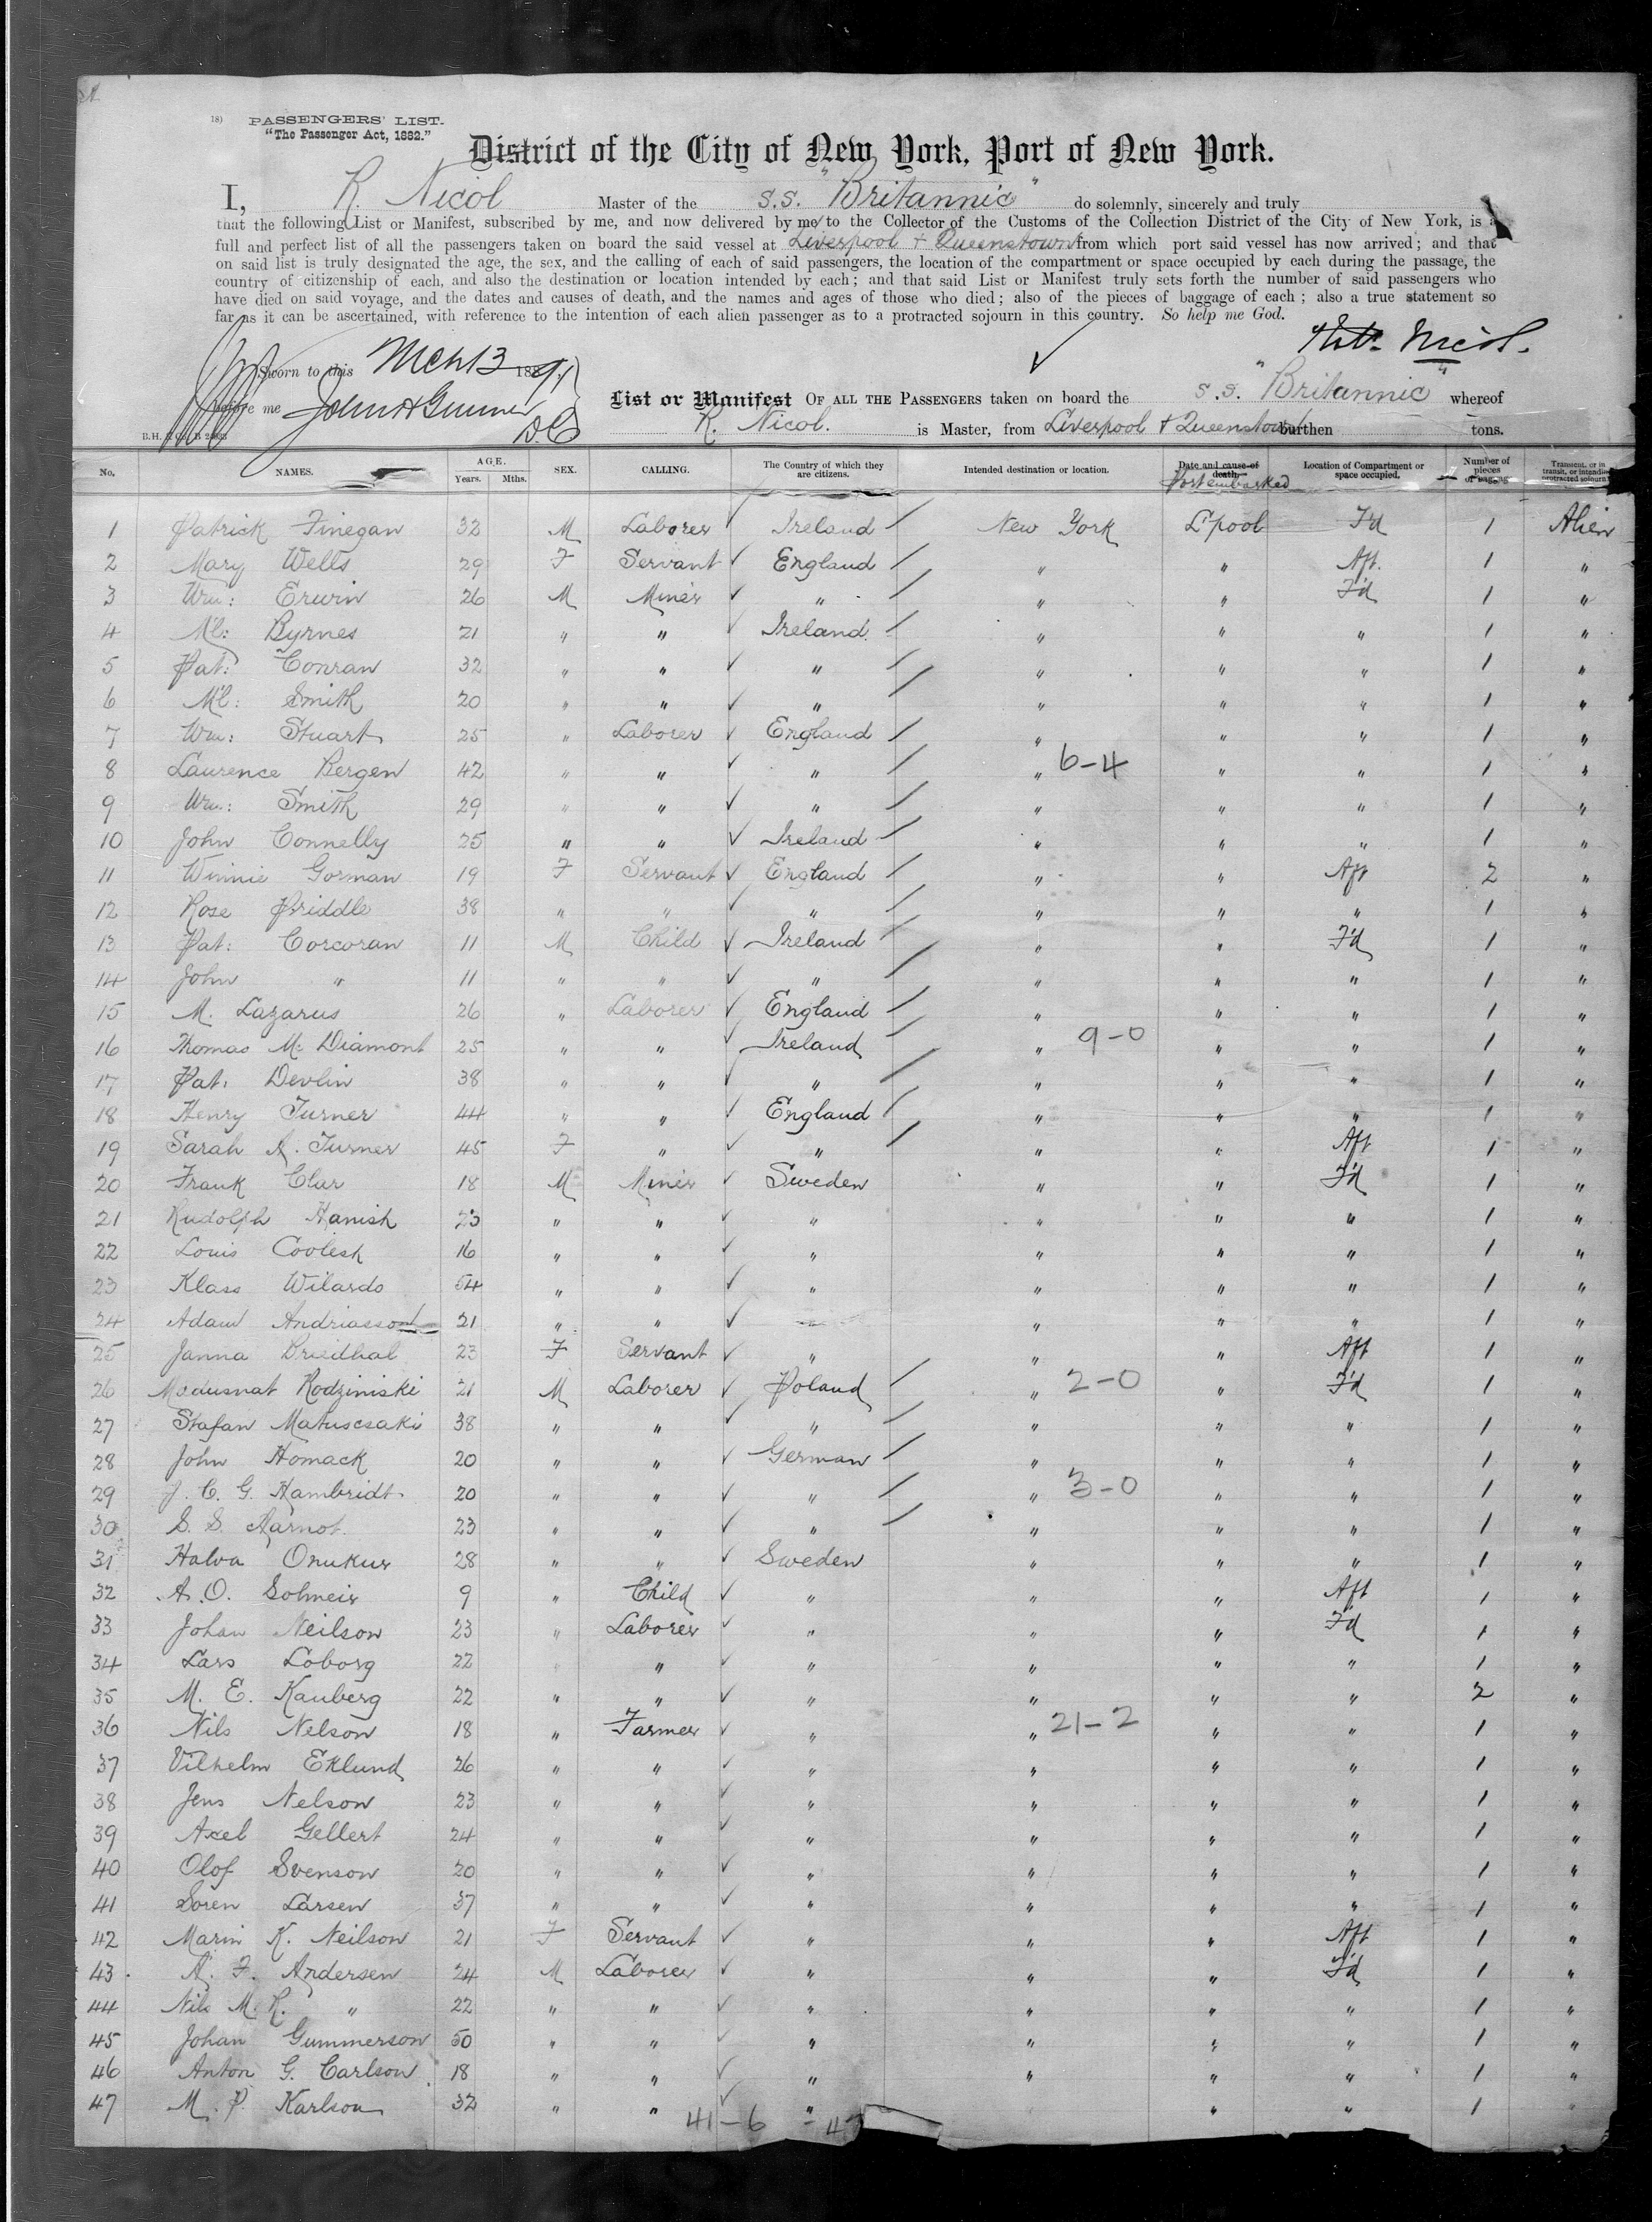 18) PASSENGERS' LIST.
"The Passenger Act, 1882."
District of the City of New York, Port of New York.
I, R. Nicol Master of the s.s. "Britannic" do solemnly, sincerely and truly
that the following List or Manifest, subscribed by me, and now delivered by me to the Collector of the Customs of the Collection District of the City of New York, is a
full and perfect list of all the passengers taken on board the said vessel at Liverpool + Queenstown from which port said vessel has now arrived; and that
on said list is truly designated the age, the sex, and the calling of each of said passengers, the location of the compartment or space occupied by each during the passage, the
country of citizenship of each, and also the destination or location intended by each; and that said List or Manifest truly sets forth the number of said passengers who
have died on said voyage, and the dates and causes of death, and the names and ages of those who died; also of the pieces of baggage of each; also a true statement so
far as it can be ascertained, with reference to the intention of each alien passenger as to a protracted sojourn in this country. So help me God.
Nicol.
Sworn to this Mch 13 1891
before me John H Gunner D.C.
List or Manifest OF ALL THE PASSENGERS taken on board the s.s. "Britannic" whereof
R. Nicol. is Master, from Liverpool + Queenstown burthen tons.
No. NAMES. AGE. Years. Mths. SEX. CALLING. The Country of which they are citizens. Intended destination or location. Date and cause of death. Port embarked Location of Compartment or space occupied. Number of pieces of baggage Transient, or in transit, or intending protracted sojourn
1 Patrick Finegan 32 M Laborer Ireland New York L'pool F'd 1 Alien
2 Mary Wells 29 F Servant England " " Aft. 1 "
3 Wm: Erwin 26 M Miner " " " F'd 1 "
4 Ml: Byrnes 21 " " Ireland. " " " 1 "
5 Pat: Conran 32 " " " " " " 1 "
6 Ml: Smith 20 " " " " " " 1 "
7 Wm: Stuart 25 " Laborer England " " " 1 "
8 Laurence Bergen 42 " " " " 6-4 " " 1 "
9 Wm: Smith 29 " " " " " " 1 "
10 John Connelly 25 " " Ireland " " " 1 "
11 Winnie Gorman 19 F Servant England " " Aft 2 "
12 Rose Priddle 38 " " " " " " 1 "
13 Pat: Corcoran 11 M Child Ireland " " F'd 1 "
14 John " 11 " " " " " " 1 "
15 M. Lazarus 26 " Laborer England " " " 1 "
16 Thomas Mc Diamont 25 " " Ireland " 9-0 " " 1 "
17 Pat: Devlin 38 " " " " " " 1 "
18 Henry Turner 44 " " England " " " 1 "
19 Sarah A. Turner 45 F " " " " Aft 1 "
20 Frank Clar 18 M Miner Sweden " " F'd 1 "
21 Rudolph Hanish 23 " " " " " " 1 "
22 Louis Coolesh 16 " " " " " " 1 "
23 Klass Wilardo 54 " " " " " " 1 "
24 Adam Andriasson 21 " " " " " " 1 "
25 Janna Briedhal 23 F Servant " " " Aft 1 "
26 Modusnat Rodziniski 21 M Laborer Poland " 2-0 " F'd 1 "
27 Stafan Matuscsaki 38 " " " " " " 1 "
28 John Homack 20 " " German " " " 1 "
29 J. C. G. Hambridt. 20 " " " " 3-0 " " 1 "
30 S. S. Aarnot. 23 " " " " " " 1 "
31 Halva Onukur 28 " " Sweden " " " 1 "
32 A. O. Solmeir 9 " Child " " " Aft 1 "
33 Johan Neilson 23 " Laborer " " " F'd 1 "
34 Lars Loborg 22 " " " " " " 1 "
35 M. E. Kauberg 22 " " " " " " 2 "
36 Nils Nelson 18 " Farmer " " 21-2 " " 1 "
37 Vilhelm Eklund 26 " " " " " " 1 "
38 Jens Nelson 23 " " " " " " 1 "
39 Axel Gellert 24 " " " " " " 1 "
40 Olof Svenson 20 " " " " " " 1 "
41 Soren Larsen 37 " " " " " " 1 "
42 Marin K. Neilson 21 F Servant " " " Aft 1 "
43 A. F. Andersen 24 M Laborer " " " F'd 1 "
44 Nils M. R. " 22 " " " " " " 1 "
45 Johan Gummerson 50 " " " " " " 1 "
46 Anton G. Carlson 18 " " " " " " 1 "
47 M. P. Karlson 32 " " " " " 1 "
41-6 - 47